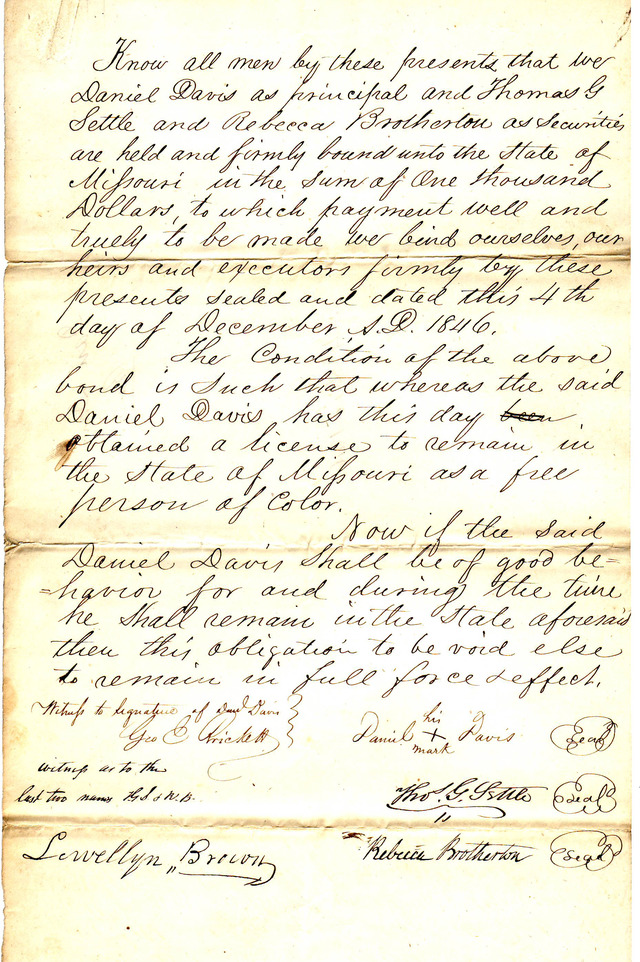 Know all men by these presents that we
Daniel Davis as principal and Thomas G
Settle and Rebecca Brotherton as securities
are held and firmly bound unto the State of
Missouri in the sum of One thousand
Dollars, to which payment well and
truely to be made we bind ourselves, our
heirs and executors firmly by these
presents sealed and dated this 4th
day of December A.D. 1846.
The Condition of the above
bond is such that whereas the said
Daniel Davis has this day been
obtained a license to remain in
the State of Missouri as a free
person of Color.
Now if the said
Daniel Davis shall be of good be-
-havior for and during the time
he shall remain in the State aforesaid
then this obligation to be void else
to remain in full force & effect.
Witness to Signature of Danl Davis
Geo
Daniel his X mark Davis Seal
witness as to the
last two names
Thos. G. Settle Seal
Lewellyn Brown
Rebecca Brotherton Seal